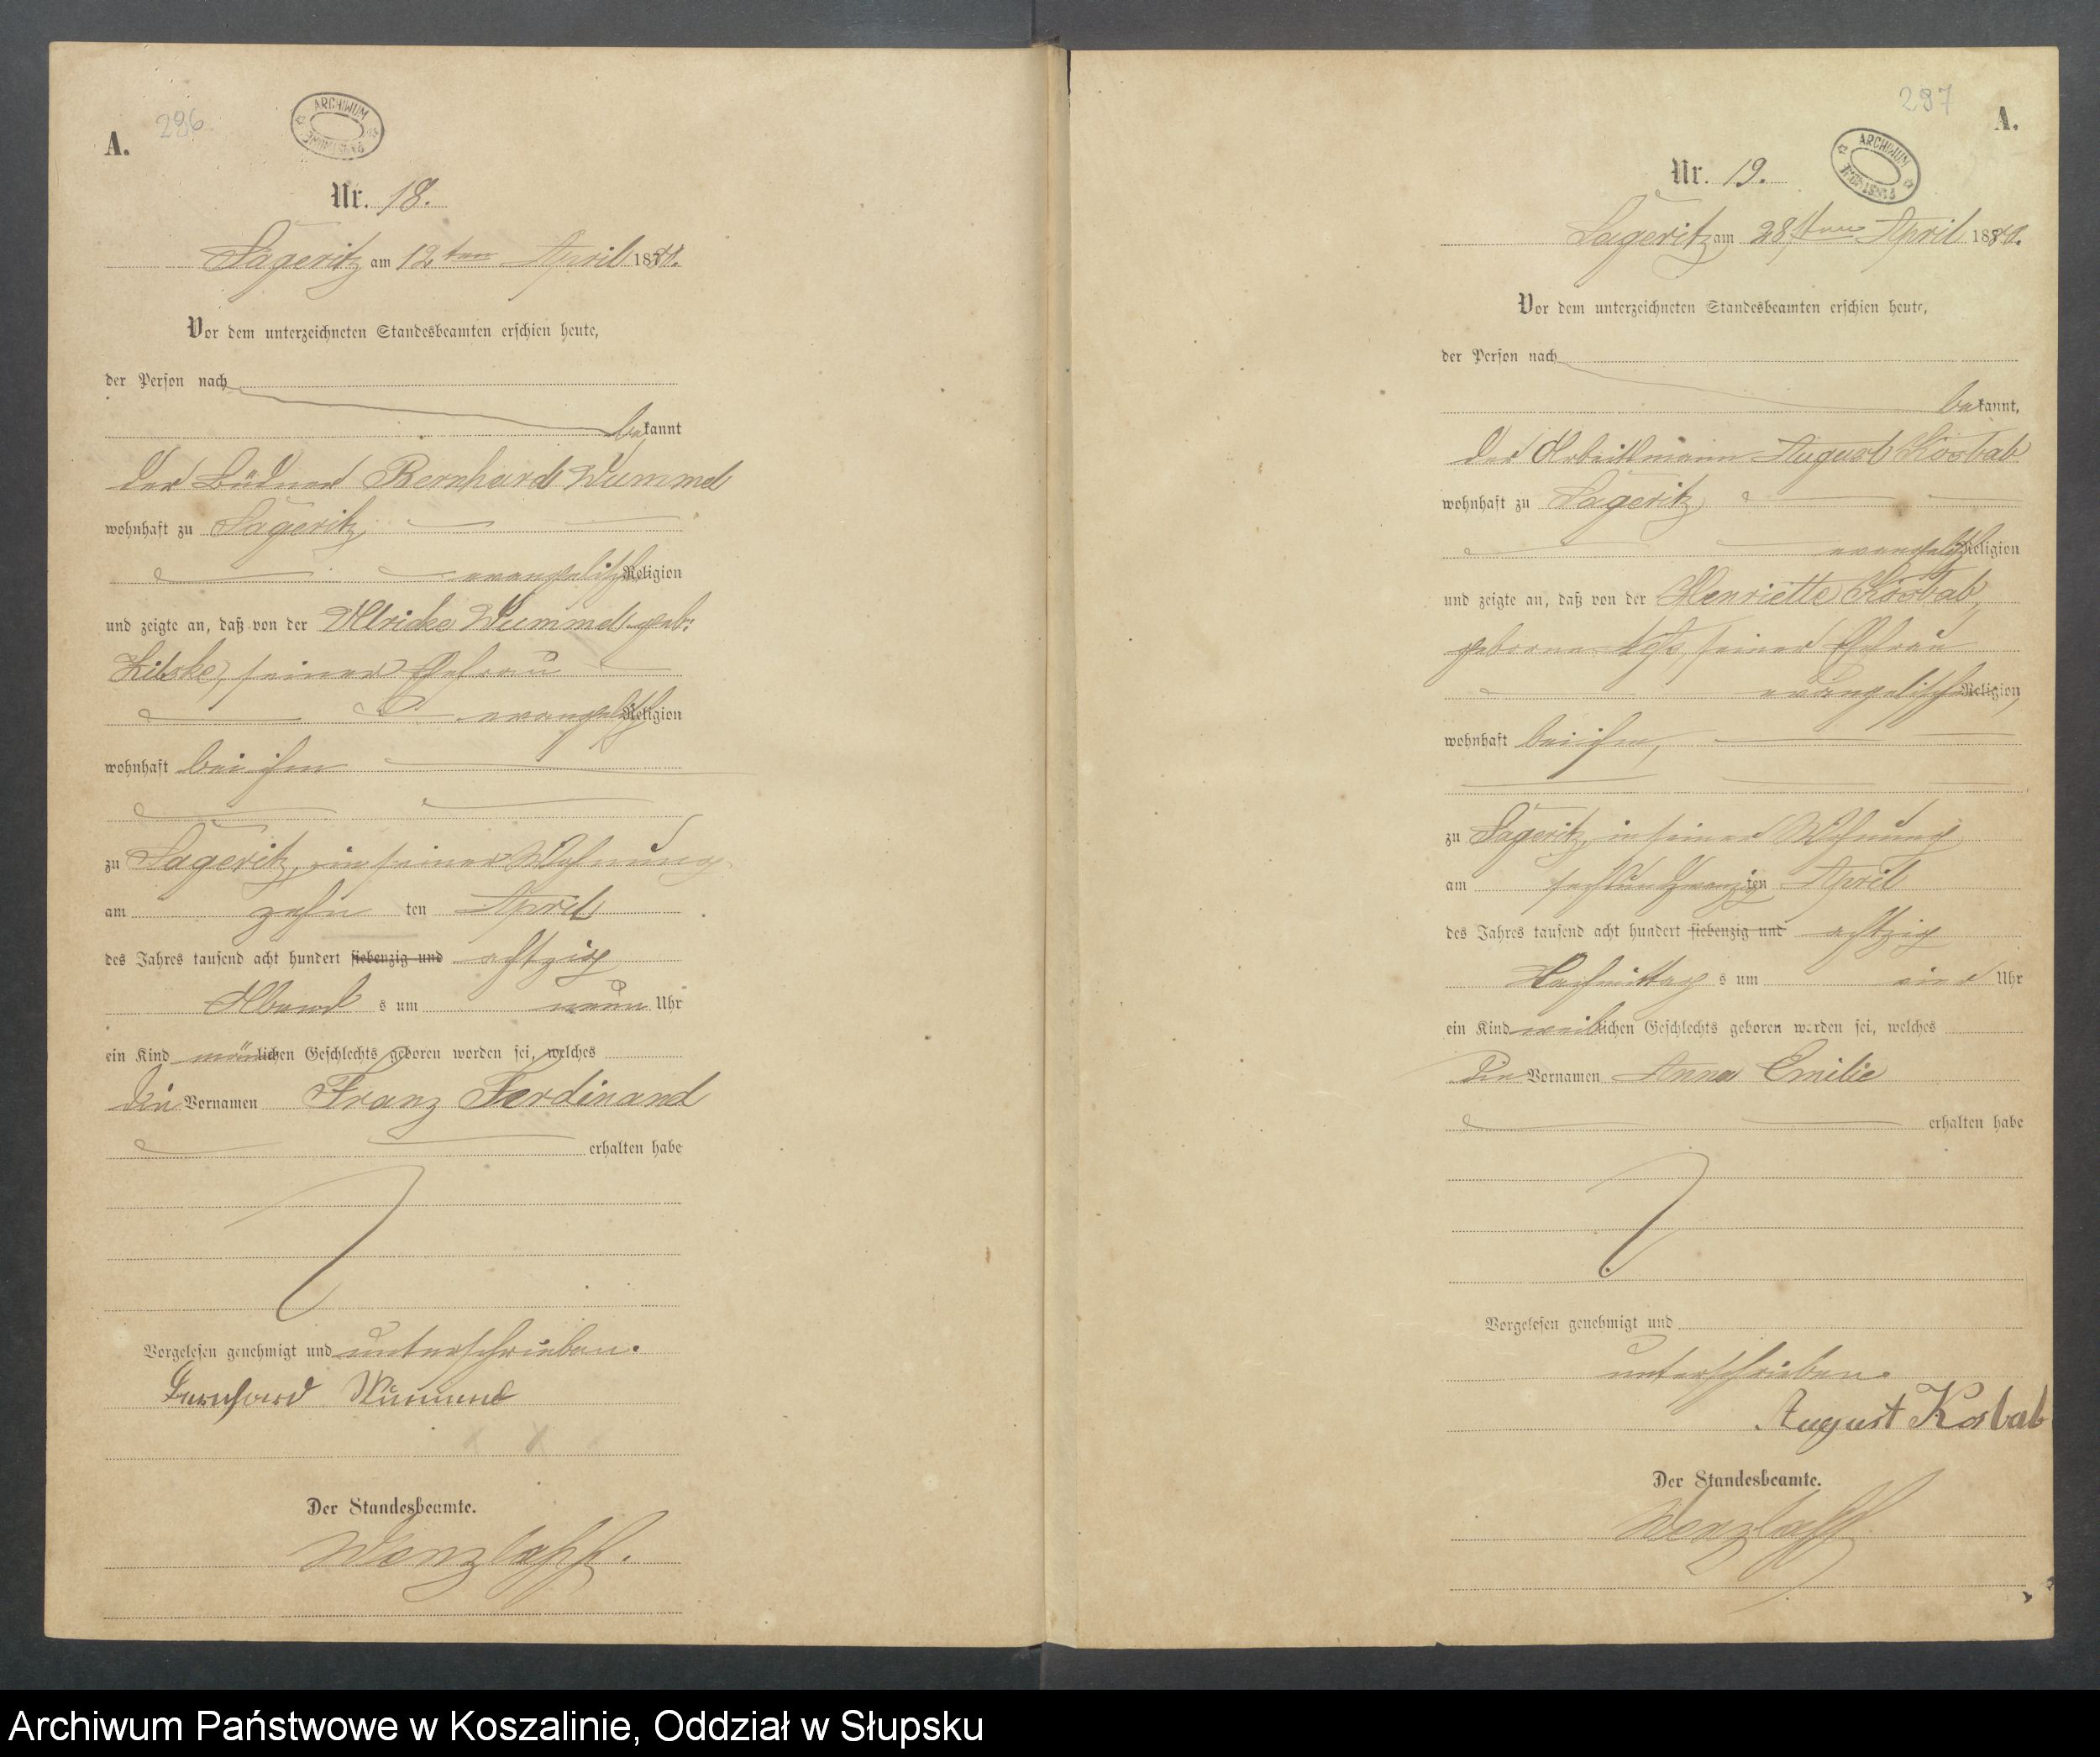 A.
296.
ARCHIWUM
Nr. 18.
Sageritz am 12ten April 1880.
Vor dem unterzeichneten Standesbeamten erschien heute,
der Person nach
bekannt
der Büdner Bernhard Wummel
wohnhaft zu Sageritz
evangelischer Religion
und zeigte an, daß von der Ulricke Wummel geb:
seiner Ehefrau
evangelisch Religion
wohnhaft bei ihm
zu Sageritz, in seiner Wohnung
am zehn ten April
des Jahres tausend acht hundert siebenzig und achtzig
Abend s um neun Uhr
ein Kind männlichen Geschlechts geboren worden sei, welches
die Vornamen Franz Ferdinand
erhalten habe
Vorgelesen genehmigt und unterschrieben.
Bernhard Wummel
Der Standesbeamte.
Wenzlaff.
297
A.
ARCHIWUM
Nr. 19.
Sageritz am 28ten April 1880.
Vor dem unterzeichneten Standesbeamten erschien heute,
der Person nach
bekannt,
der Arbeitsmann August Kosbab
wohnhaft zu Sageritz
evangelisch Religion
und zeigte an, daß von der Henriette Kosbab,
geborne seiner Ehefrau
evangelischer Religion,
wohnhaft bei ihm,
zu Sageritz, in seiner Wohnung
am ten April
des Jahres tausend acht hundert siebenzig und achtzig
Nachmittag s um Uhr
ein Kind weiblichen Geschlechts geboren worden sei, welches
die Vornamen Anna Emilie
erhalten habe
Vorgelesen genehmigt und
unterschrieben.
August Kosbab
Der Standesbeamte.
Wenzlaff
Archiwum Państwowe w Koszalinie, Oddział w Słupsku